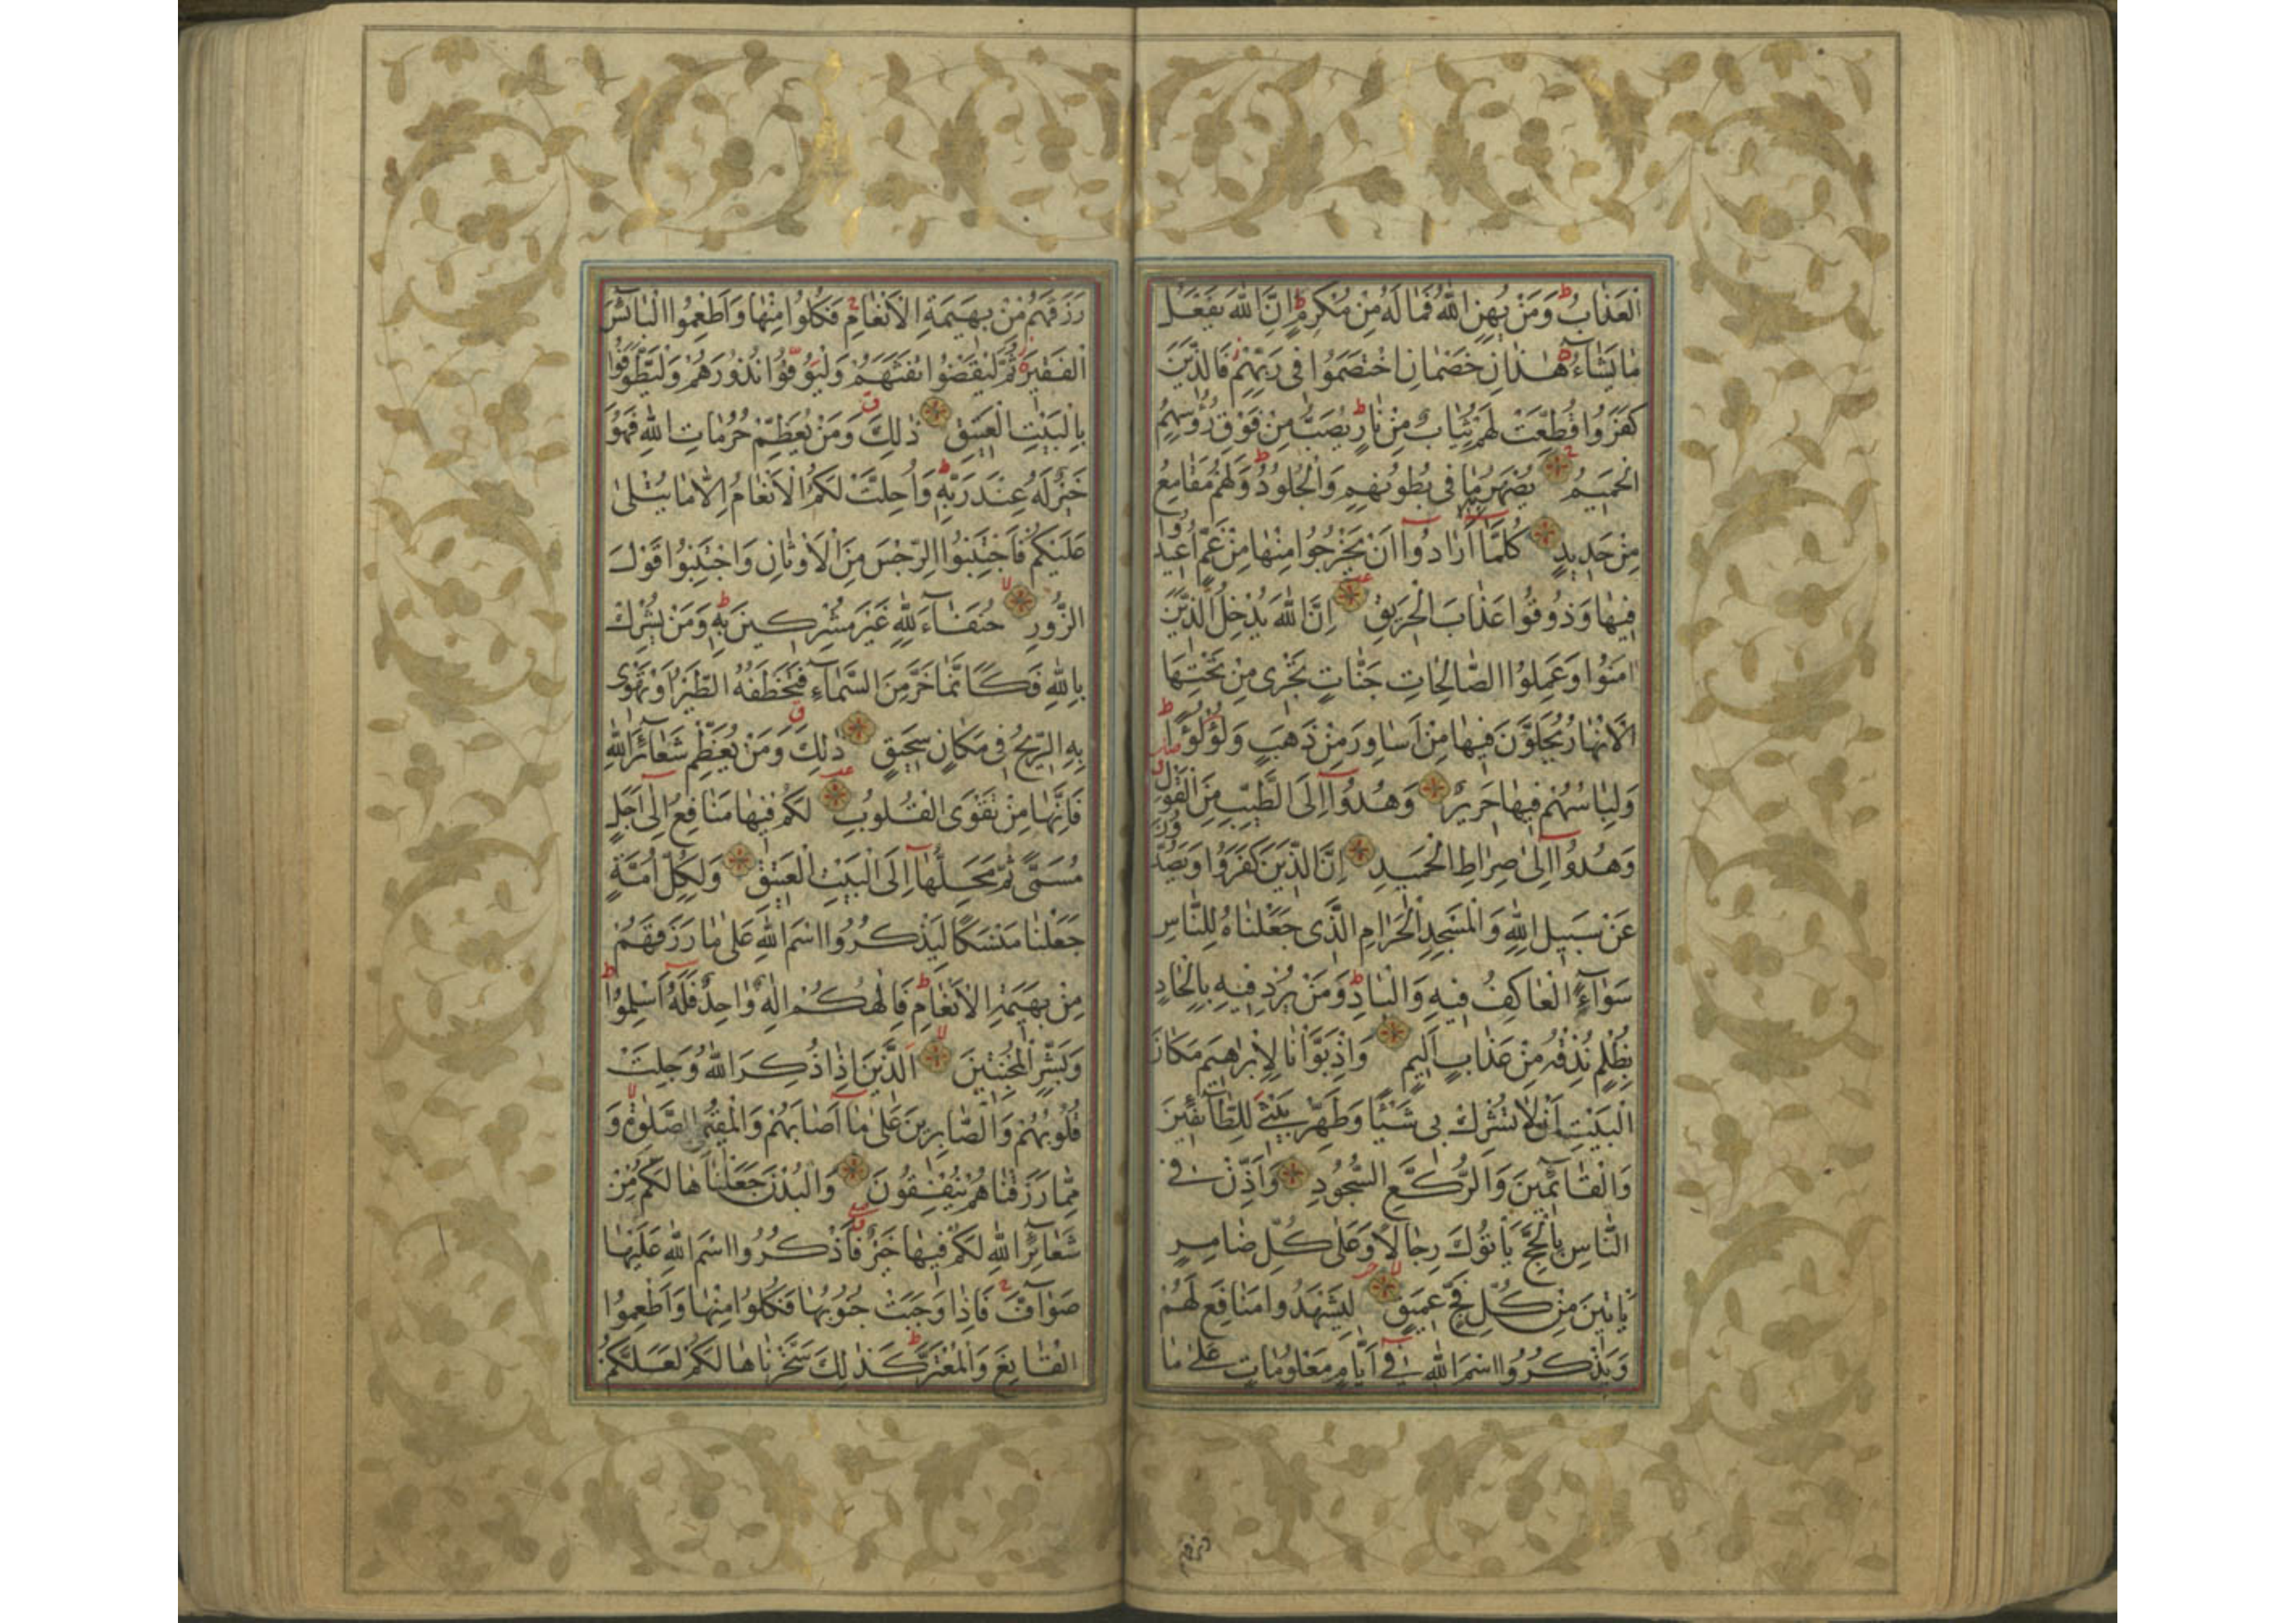 الْعَذَابُ وَمَنْ يُهِنِ اللّٰهُ فَمَا لَهُ مِنْ مُكْرِمٍ اِنَّ اللّٰهَ يَفْعَلُ
مَا يَشَآءُ هٰذَانِ خَصْمَانِ اخْتَصَمُوا فِى رَبِّهِمْ فَالَّذِينَ
كَفَرُوا قُطِّعَتْ لَهُمْ ثِيَابٌ مِنْ نَارٍ يُصَبُّ مِنْ فَوْقِ رُؤُسِهِمُ
الْحَمِيمُ يُصْهَرُ بِهِ مَا فِى بُطُونِهِمْ وَالْجُلُودُ وَلَهُمْ مَقَامِعُ
مِنْ حَدِيدٍ كُلَّمَآ اَرَادُوآ اَنْ يَخْرُجُوا مِنْهَا مِنْ غَمٍّ اُعِيدُوا
فِيهَا وَذُوقُوا عَذَابَ الْحَرِيقِ اِنَّ اللّٰهَ يُدْخِلُ الَّذِينَ
اٰمَنُوا وَعَمِلُوا الصَّالِحَاتِ جَنَّاتٍ تَجْرِى مِنْ تَحْتِهَا
الْاَنْهَارُ يُحَلَّوْنَ فِيهَا مِنْ اَسَاوِرَ مِنْ ذَهَبٍ وَلُؤْلُؤًا
وَلِبَاسُهُمْ فِيهَا حَرِيرٌ وَهُدُوآ اِلَى الطَّيِّبِ مِنَ الْقَوْلِ
وَهُدُوآ اِلٰى صِرَاطِ الْحَمِيدِ اِنَّ الَّذِينَ كَفَرُوا وَيَصُدُّونَ
عَنْ سَبِيلِ اللّٰهِ وَالْمَسْجِدِ الْحَرَامِ الَّذِى جَعَلْنَاهُ لِلنَّاسِ
سَوَآءً الْعَاكِفُ فِيهِ وَالْبَادِ وَمَنْ يُرِدْ فِيهِ بِاِلْحَادٍ
بِظُلْمٍ نُذِقْهُ مِنْ عَذَابٍ اَلِيمٍ وَاِذْ بَوَّاْنَا لِاِبْرٰهِيمَ مَكَانَ
الْبَيْتِ اَنْ لَا تُشْرِكْ بِى شَيْئًا وَطَهِّرْ بَيْتِىَ لِلطَّآئِفِينَ
وَالْقَآئِمِينَ وَالرُّكَّعِ السُّجُودِ وَاَذِّنْ فِى
النَّاسِ بِالْحَجِّ يَاْتُوكَ رِجَالًا وَعَلٰى كُلِّ ضَامِرٍ
يَاْتِينَ مِنْ كُلِّ فَجٍّ عَمِيقٍ لِيَشْهَدُوا مَنَافِعَ لَهُمْ
وَيَذْكُرُوا اسْمَ اللّٰهِ فِىٓ اَيَّامٍ مَعْلُومَاتٍ عَلٰى مَا
رَزَقَهُمْ مِنْ بَهِيمَةِ الْاَنْعَامِ فَكُلُوا مِنْهَا وَاَطْعِمُوا الْبَآئِسَ
الْفَقِيرَ ثُمَّ لْيَقْضُوا تَفَثَهُمْ وَلْيُوفُوا نُذُورَهُمْ وَلْيَطَّوَّفُوا
بِالْبَيْتِ الْعَتِيقِ ذٰلِكَ وَمَنْ يُعَظِّمْ حُرُمَاتِ اللّٰهِ فَهُوَ
خَيْرٌ لَهُ عِنْدَ رَبِّهِ وَاُحِلَّتْ لَكُمُ الْاَنْعَامُ اِلَّا مَا يُتْلٰى
عَلَيْكُمْ فَاجْتَنِبُوا الرِّجْسَ مِنَ الْاَوْثَانِ وَاجْتَنِبُوا قَوْلَ
الزُّورِ حُنَفَآءَ لِلّٰهِ غَيْرَ مُشْرِكِينَ بِهِ وَمَنْ يُشْرِكْ
بِاللّٰهِ فَكَاَنَّمَا خَرَّ مِنَ السَّمَآءِ فَتَخْطَفُهُ الطَّيْرُ اَوْ تَهْوِى
بِهِ الرِّيحُ فِى مَكَانٍ سَحِيقٍ ذٰلِكَ وَمَنْ يُعَظِّمْ شَعَآئِرَ اللّٰهِ
فَاِنَّهَا مِنْ تَقْوَى الْقُلُوبِ لَكُمْ فِيهَا مَنَافِعُ اِلٰٓى اَجَلٍ
مُسَمًّى ثُمَّ مَحِلُّهَآ اِلَى الْبَيْتِ الْعَتِيقِ وَلِكُلِّ اُمَّةٍ
جَعَلْنَا مَنْسَكًا لِيَذْكُرُوا اسْمَ اللّٰهِ عَلٰى مَا رَزَقَهُمْ
مِنْ بَهِيمَةِ الْاَنْعَامِ فَاِلٰهُكُمْ اِلٰهٌ وَاحِدٌ فَلَهُٓ اَسْلِمُوا
وَبَشِّرِ الْمُخْبِتِينَ اَلَّذِينَ اِذَا ذُكِرَ اللّٰهُ وَجِلَتْ
قُلُوبُهُمْ وَالصَّابِرِينَ عَلٰى مَآ اَصَابَهُمْ وَالْمُقِيمِى الصَّلٰوةِ وَ
مِمَّا رَزَقْنَاهُمْ يُنْفِقُونَ وَالْبُدْنَ جَعَلْنَاهَا لَكُمْ مِنْ
شَعَآئِرِ اللّٰهِ لَكُمْ فِيهَا خَيْرٌ فَاذْكُرُوا اسْمَ اللّٰهِ عَلَيْهَا
صَوَآفَّ فَاِذَا وَجَبَتْ جُنُوبُهَا فَكُلُوا مِنْهَا وَاَطْعِمُوا
الْقَانِعَ وَالْمُعْتَرَّ كَذٰلِكَ سَخَّرْنَاهَا لَكُمْ لَعَلَّكُمْ
رزقهم